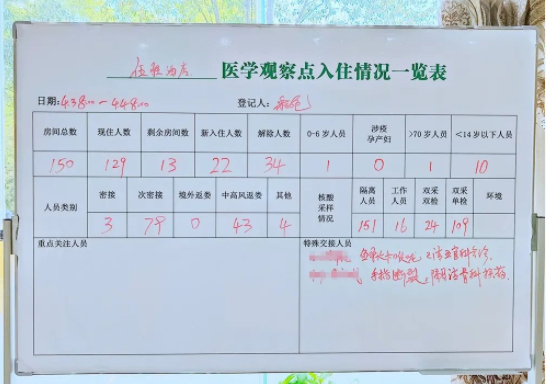 医学观察点入住情况一览表
日期: 登记人:
房间总数 现住人数 剩余房间数 新入住人数 解除人数 0-6岁人员 涉疫孕产妇 >70岁人员 <14岁以下人员
150 129 13 22 34 1 0 1 10
人员类别 密接 次密接 境外返委 中高风返委 其他 核酸采样情况 隔离人员 工作人员 双采双检 双采单检 环境
3 79 0 43 4 151 16 24 109
重点关注人员 特殊交接人员